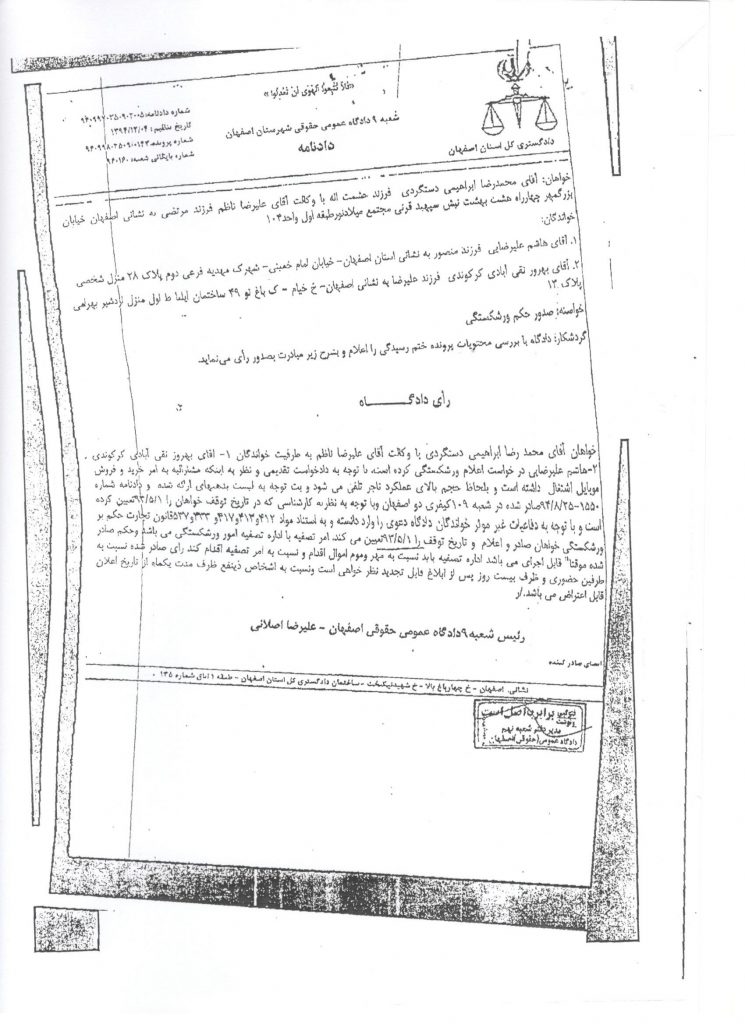 «فلا تتبعوا الهوی ان تعدلوا»
شعبه ۹ دادگاه عمومی حقوقی شهرستان اصفهان
دادنامه
دادگستری کل استان اصفهان
شماره دادنامه:
تاریخ تنظیم: ۱۳۹۴/۱۲/۰۴
شماره پرونده:
شماره بایگانی شعبه:
خواهان: آقای محمدرضا ابراهیمی دستگردی فرزند حشمت اله با وکالت آقای علیرضا ناظم فرزند مرتضی به نشانی اصفهان خیابان
بزرگمهر چهارراه هشت بهشت نبش سپهبد قرنی مجتمع میلادنور طبقه اول واحد ۱۰۴
خواندگان:
۱. آقای هاشم علیرضایی فرزند منصور به نشانی استان اصفهان- خیابان امام خمینی- شهرک مهدیه فرعی دوم پلاک ۲۸ منزل شخصی
۲. آقای بهروز نقی آبادی کرکوندی فرزند علیرضا به نشانی اصفهان- خ خیام - ک باغ نو ۴۹ ساختمان ایلما ط اول منزل اردشیر بهرامی
پلاک ۱۲
خواسته: صدور حکم ورشکستگی
گردشکار: دادگاه با بررسی محتویات پرونده ختم رسیدگی را اعلام و بشرح زیر مبادرت بصدور رأی می‌نماید.
رأی دادگاه
خواهان آقای محمد رضا ابراهیمی دستگردی با وکالت آقای علیرضا ناظم به طرفیت خواندگان ۱- اقای بهروز نقی آبادی کرکوندی
۲-هاشم علیرضایی در خواست اعلام ورشکستگی کرده است، با توجه به دادخواست تقدیمی و نظر به اینکه مشارالیه به امر خرید و فروش
موبایل اشتغال داشته است و بلحاظ حجم بالای عملکرد تاجر تلقی می شود و بت توجه به لیست بدهیهای ارائه شده و دادنامه شماره
۱۵۵۰-۹۴/۸/۲۵ صادر شده در شعبه ۱۰۹ کیفری دو اصفهان وبا توجه به نظریه کارشناسی که در تاریخ توقف خواهان را ۹۳/۵/۱ تعیین کرده
است و با توجه به دفاعیات غیر موثر خواندگان دادگاه دعوی را وارد دانسته و به استناد مواد ۴۱۲و۴۱۳و۴۱۷و ۴۳۳و ۵۳۷قانون تجارت حکم بر
ورشکستگی خواهان صادر و اعلام و تاریخ توقف را ۹۳/۵/۱تعیین می کند، امر تصفیه با اداره تصفیه امور ورشکستگی می باشد وحکم صادر
شده موقتا" قابل اجرای می باشد اداره تصفیه باید نسبت به مهر وموم اموال اقدام و نسبت به امر تصفیه اقدام کند رای صادر شده نسبت به
طرفین حضوری و ظرف بیست روز پس از ابلاغ قابل تجدید نظر خواهی است ونسبت به اشخاص ذینفع ظرف مدت یکماه از تاریخ اعلان
قابل اعتراض می باشد./ر
رئیس شعبه ۹ دادگاه عمومی حقوقی اصفهان - علیرضا اصلانی
امضای صادر کننده
نشانی: اصفهان - خ چهارباغ بالا - خ شهیدنیکبخت - ساختمان دادگستری کل استان اصفهان - طبقه ۱ اتاق شماره ۱۳۵
برابر با اصل است
مدیر دفتر شعبه نهم
دادگاه عمومی (حقوقی) اصفهان